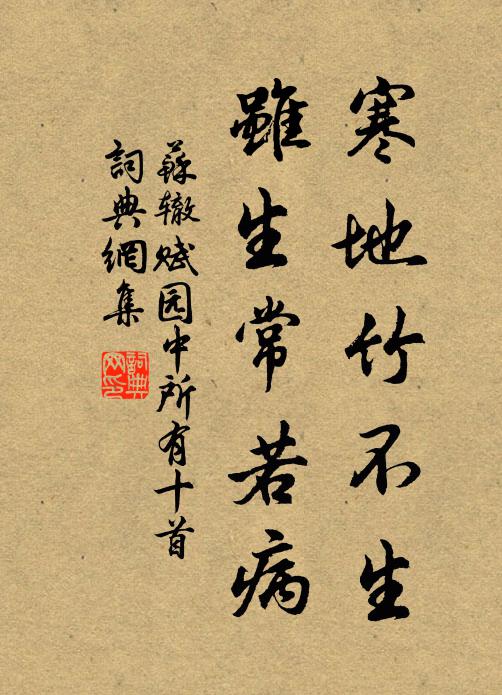 寒地竹不生
雖生常若病
蘇辙赋园中所有十首
詞典網集
詞典网印